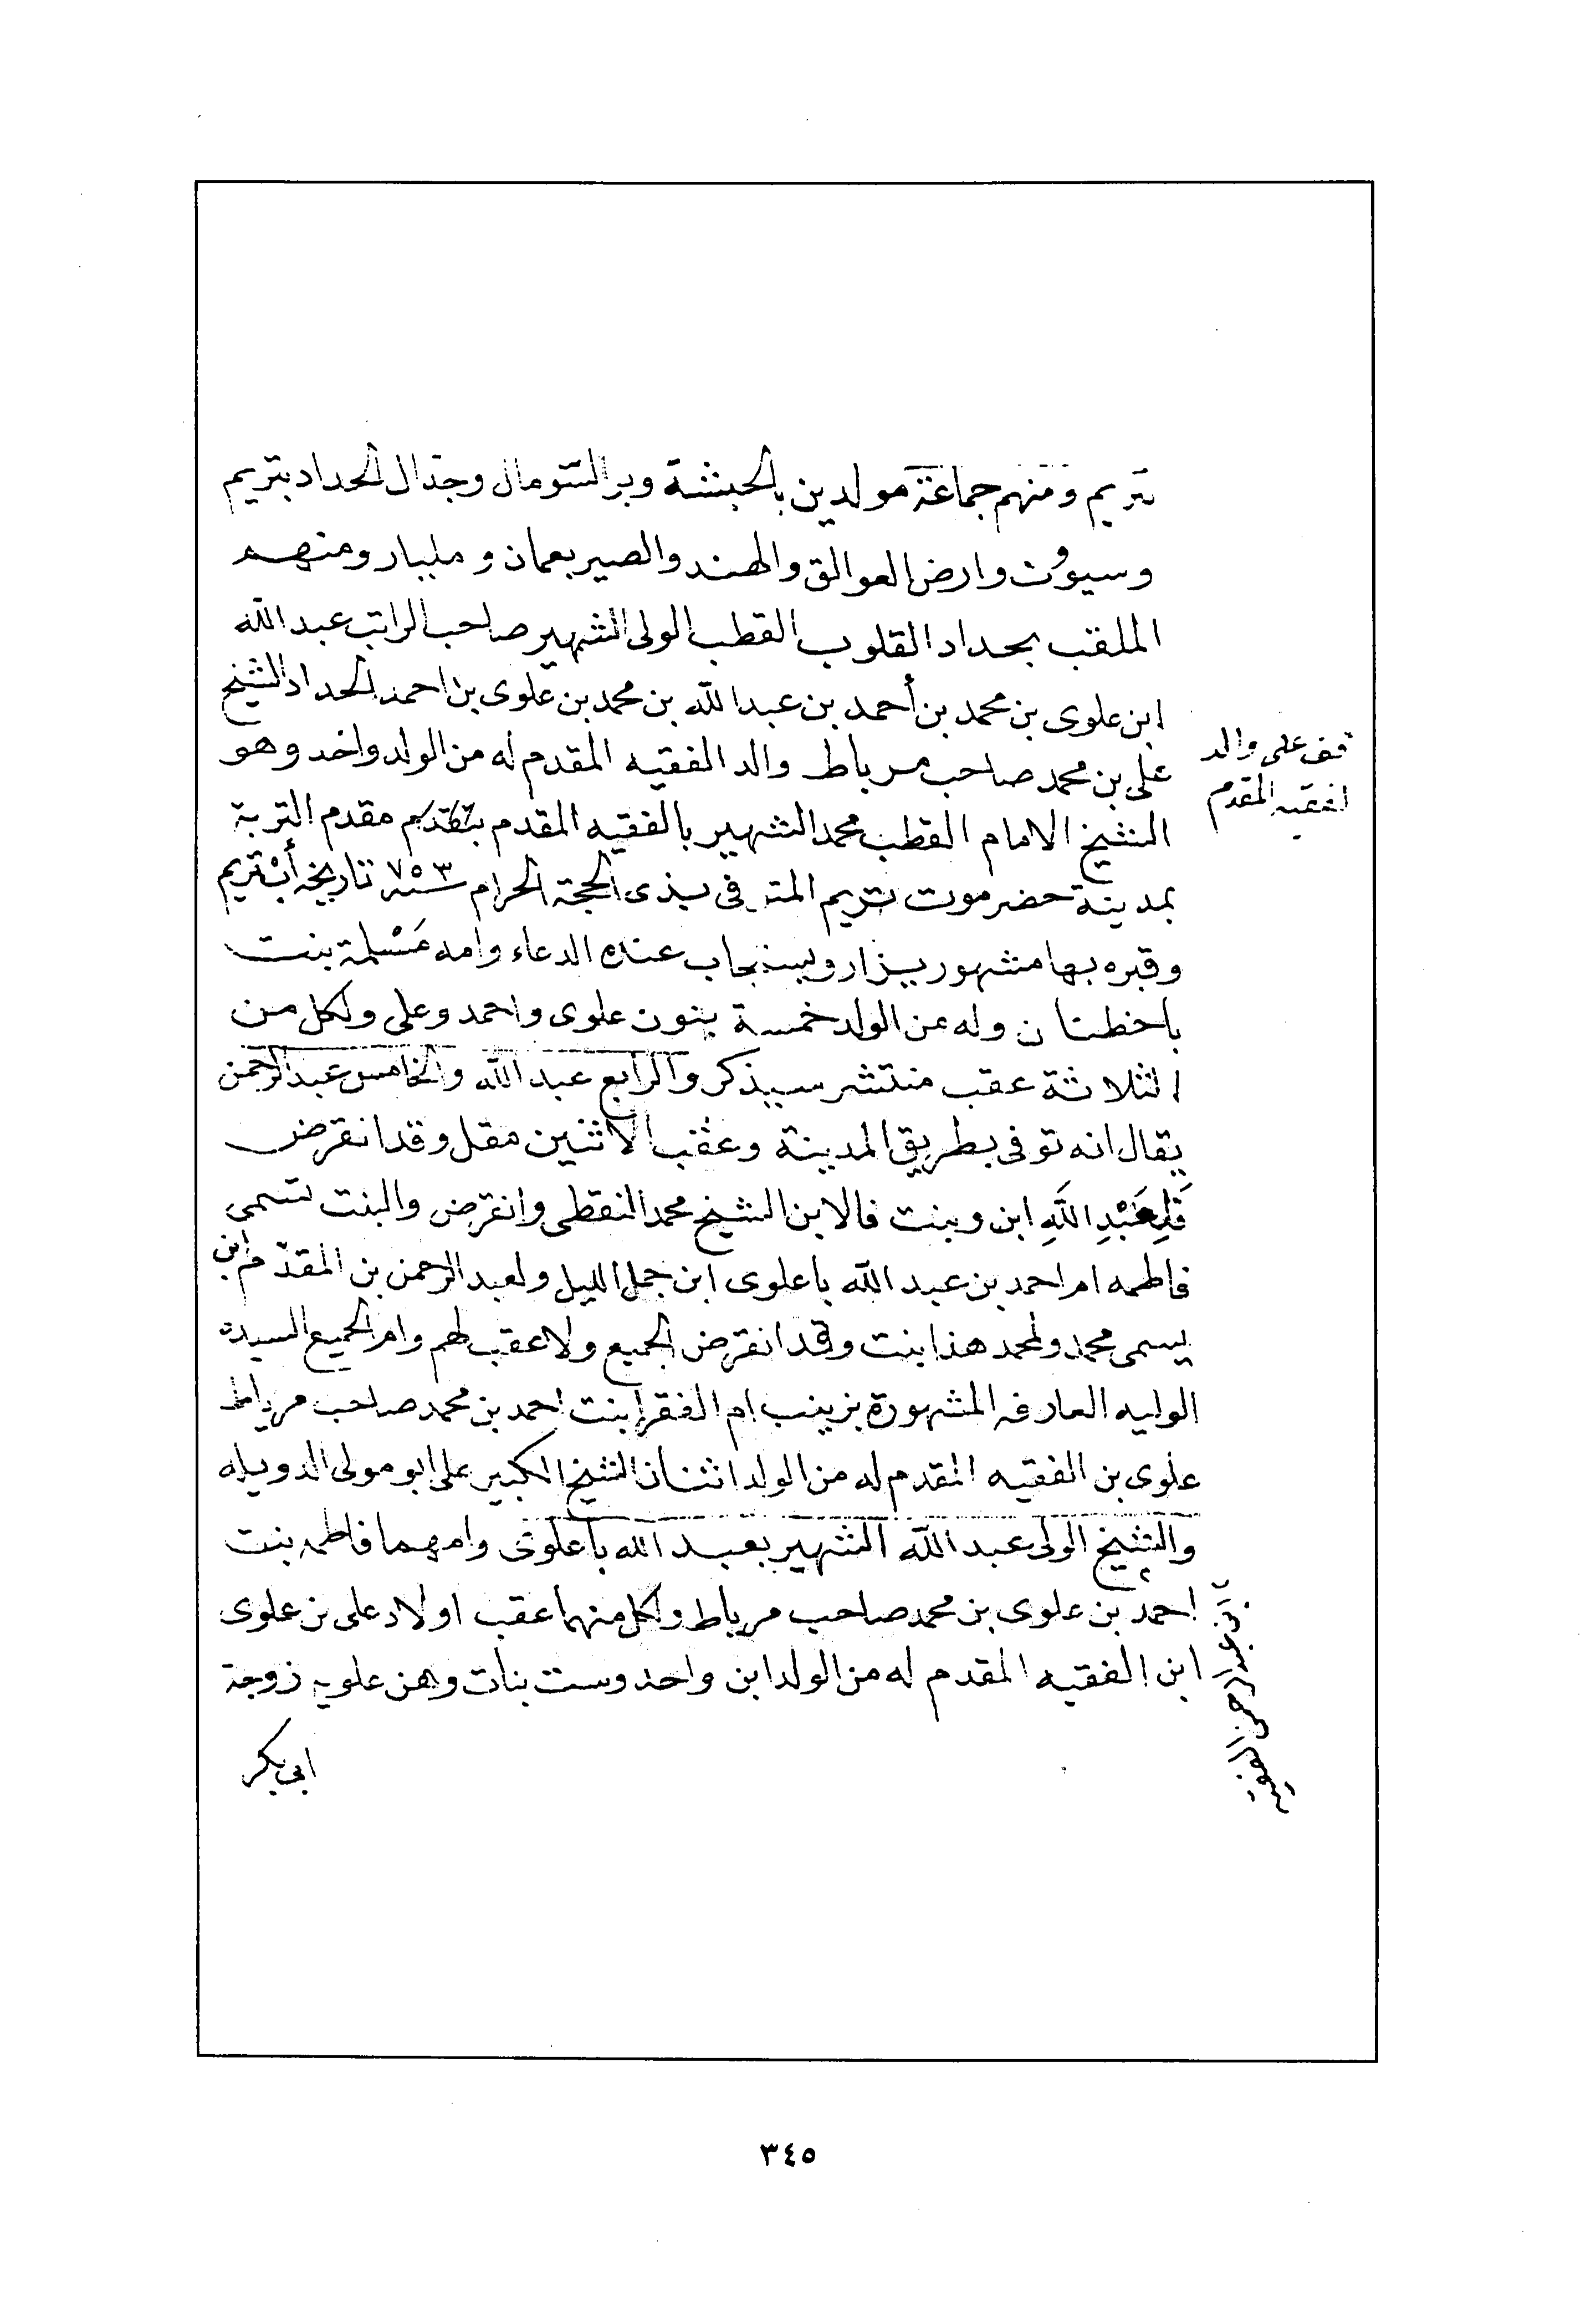 تريم ومنهم جماعة مولدين بالحبشة وبر السومال وجد ال الحداد بتريم
وسيوُن وارض العوالق والهند والصير بعمان ومليبار ومنهم
الملقب بحداد القلوب القطب الولى الشهير صاحب الراتب عبد الله
ابن علوى بن محمد بن أحمد بن عبد الله بن محمد بن علوى بن احمد الحداد الشيخ
على بن محمد صاحب مرباط والد الفقيه المقدم له من الولد واحد وهو
قف على والد
الفقيه المقدم
الشيخ الامام القطب محمد الشهير بالفقيه المقدم مقدم التربة
بمدينة حضرموت تريم فى بذى الحجة الحرام سنة ٧٥٣ تاريخه أب تريم
وقبره بها مشهور يزار ويستجاب عنده الدعاء وامه بنت
باحطنان وله من الولد خمسة بنون علوى واحمد وعلى ولكل من
الثلاثة عقب منتشر سيذكر والرابع عبد الله والخامس عبد الرحمن
يقال انه توفى بطريق المدينة وعقب الاثنين مقل وقد انقرض
فَلِعَبْدِ اللَّهِ ابن وبنت فالابن الشيخ محمد النقطى وانقرض والبنت تسمى
فاطمه ام احمد بن عبد الله باعلوى ابن جمل الليل ولعبد الرحمن بن المقدم ابن
يسمى محمد ولمحمد هذا بنت وقد انقرض الجميع ولا عقب لهم وام الجميع السيدة
الوليه العارفه المشهورة بزينب ام الفقرا بنت احمد بن محمد صاحب مرباط
علوى بن الفقيه المقدم له من الولد اثنان الشيخ الكبير على ابو مولى الدويله
والشيخ الولى عبد الله الشهير بعبد الله باعلوى وامهما فاطمه بنت
احمد بن علوى بن محمد صاحب مرباط ولكل منهما عقب اولاد على بن علوى
ابن الفقيه المقدم له من الولد ابن واحد وست بنات وهن علويه زوجة
بن عبد الرحمن الفقيه
ابى بكر
٣٤٥